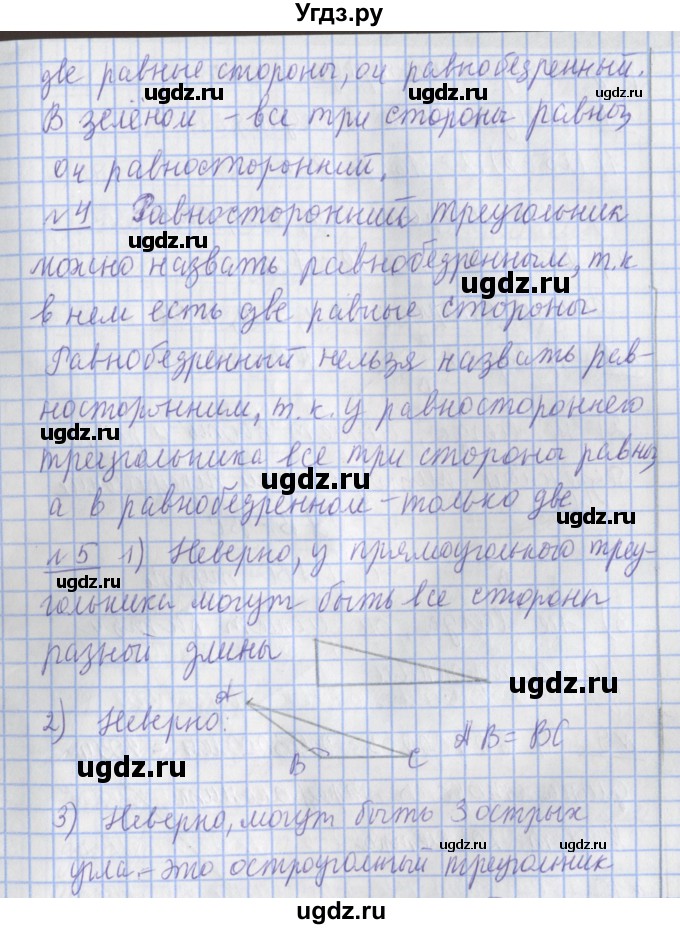 Угдз.ру
две равные стороны, он равнобедренный.
ugdz.ru ugdz.ru ugdz.ru
В зелёном – все три стороны равны,
он равносторонний.
ugdz.ru
№4 Равносторонний треугольник
ugdz.ru
можно назвать равнобедренным, т.к
ugdz.ru
в нем есть две равные стороны
Равнобедренный нельзя назвать рав-
носторонним, т.к. у равностороннего
ugdz.ru
треугольника все три стороны равны,
ugdz.ru
а в равнобедренном – только две
ugdz.ru
№5 1) Неверно, у прямоугольного треу-
ugdz.ru
гольника могут быть все стороны
разной длины
ugdz.ru
A
2) Неверно: AB = BC
B C
ugdz.ru
3) Неверно, могут быть 3 острых
ugdz.ru ugdz.ru
угла – это остроугольный треугольник
ugdz.ru